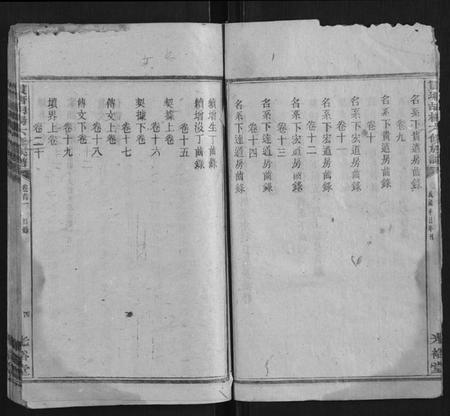 卷九
名系下貴道房齒錄
卷十
名系下貴道房齒錄
卷十一
名系下宏道房齒錄
卷十二
名系下宏道房齒錄
卷十三
名系下達道房齒錄
卷十四
名系下達道房齒錄
光裕堂
續增生丁齒錄
續增沒丁齒錄
卷十五
契據上卷
卷十六
契據下卷
卷十七
傳文上卷
卷十八
傳文下卷
卷十九
墳界上卷
卷二十
卷首一
目錄
四
光裕堂